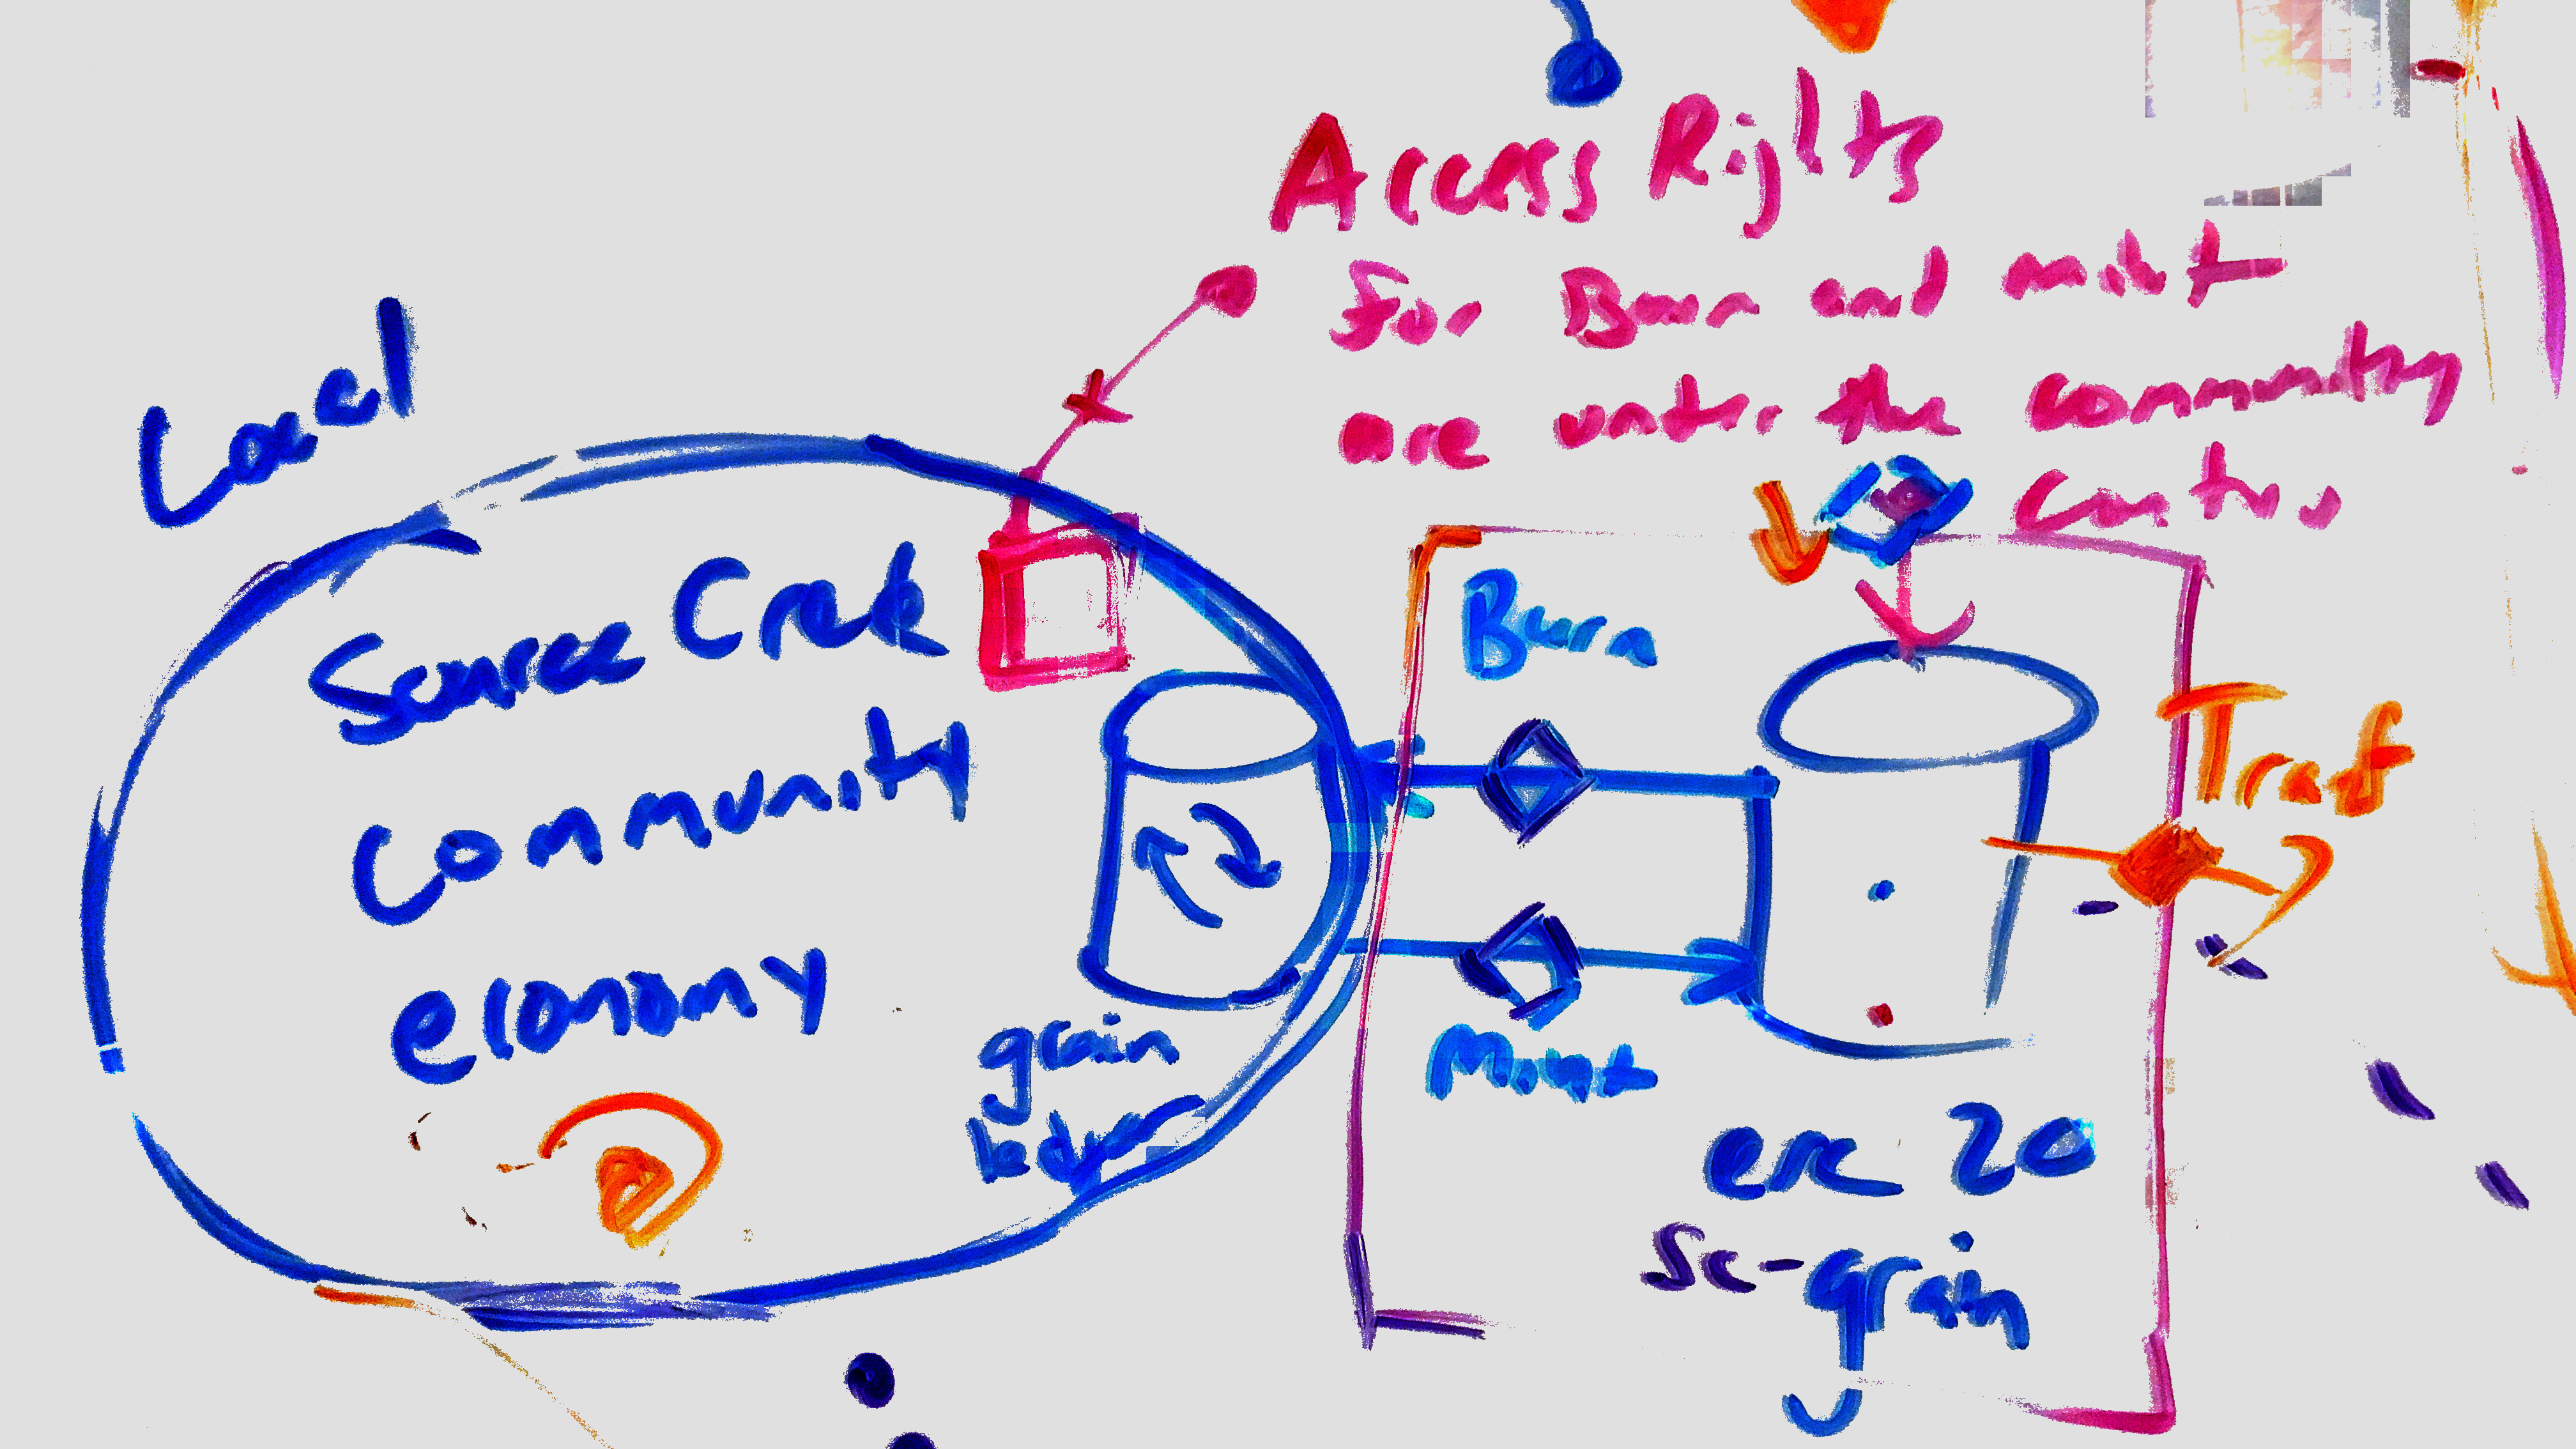 Access Rights
for Burn and mint
are under the community
Contro
Local
Source Crek
community
economy
grain
ledger
Burn
Mint
erc 20
Sc-grain